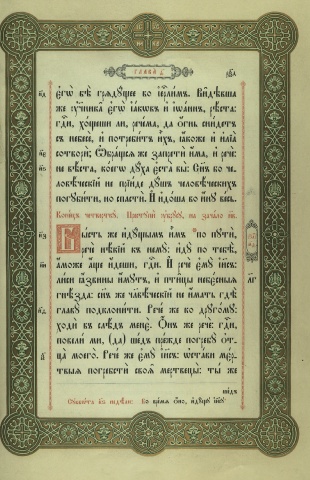 ГЛАВА̀ Ѳ҃.
є҆гѡ̀ бѣ̀ грѧдꙋ́щее во і҆ерⷭ҇ли́мъ. Ви́дѣвша
же ᲂу҆чн҃ка̀ є҆гѡ̀ і҆а́кѡвъ и҆ і҆ѡа́ннъ, рѣ́ста:
гдⷭ҇и, хо́щеши ли, рече́ма, да ѻ҆́гнь сни́детъ
съ небесѐ, и҆ потреби́тъ и҆̀хъ, ꙗ҆́коже и҆ и҆лїа̀
сотворѝ; Ѡ҆бра́щьсѧ же запретѝ и҆́ма, и҆ речѐ:
не вѣ́ста, ко́егѡ дꙋ́ха є҆ста̀ вы̀: Сн҃ъ бо че-
ловѣ́ческїй не прїи́де дꙋ́шъ человѣ́ческихъ
погꙋби́ти, но спастѝ. И҆ и҆до́ша во и҆́нꙋ ве́сь.
Коне́цъ четверткꙋ̀.
Бы́сть же и҆дꙋ́щымъ и҆̀мъ по пꙋтѝ,
речѐ нѣ́кїй къ немꙋ̀: и҆дꙋ̀ по тебѣ̀,
а҆́може а҆́ще и҆́деши, гдⷭ҇и. И҆ речѐ є҆мꙋ̀ і҆и҃съ:
ли́си ꙗ҆́звины и҆́мꙋтъ, и҆ пти̑цы небє́сныѧ
гнѣ́зда: сн҃ъ же чл҃вѣ́ческїй не и҆́мать гдѣ̀
главꙋ̀ подклони́ти. Рече́ же ко дрꙋго́мꙋ:
ходѝ в̾слѣ́дъ менѐ. Ѻ҆́нъ же речѐ: гдⷭ҇и,
повели́ ми, (да) ше́дъ пре́жде погребꙋ̀ ѻ҆т-
ца̀ моего̀. Рече́ же є҆мꙋ̀ і҆и҃съ: ѡ҆ста́ви ме́р-
твыѧ погребстѝ своѧ̑ мертвецы̀: ты́ же
ше́дъ
Во вре́мѧ ѻ҆́но,